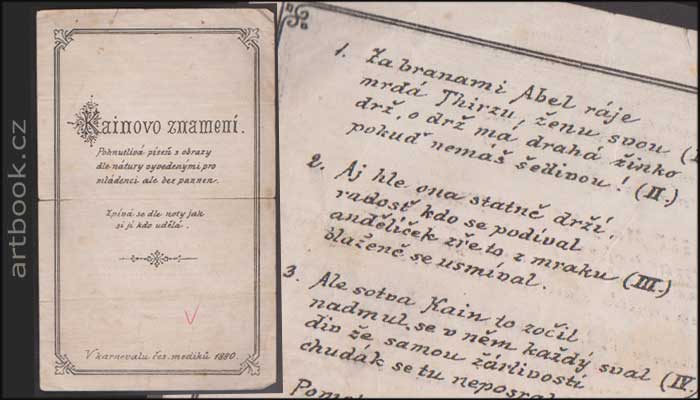 artbook.cz
Kainovo znamení.
Pohnutlivá píseň s obrazy
dle nátury vyvedenými pro
mládenci ale bez pannen.
Zpívá se dle noty jak
si ji kdo udělá.
V karnevalu čes. mediků 1880.
1. Za branami Abel ráje
mrdá Thirzu, ženu svou (I
drž, o drž má drahá žinko
pokuď nemáš šedivou! (II.)
2. Aj hle ona statně drží,
radosť kdo se podíval
andělíček zře to z mraku (III.)
blaženě se usmíval.
3. Ale sotva Kain to zočil
nadmul se v něm každý sval (IV.
div že samou žárlivostí
chuďák se tu neposral